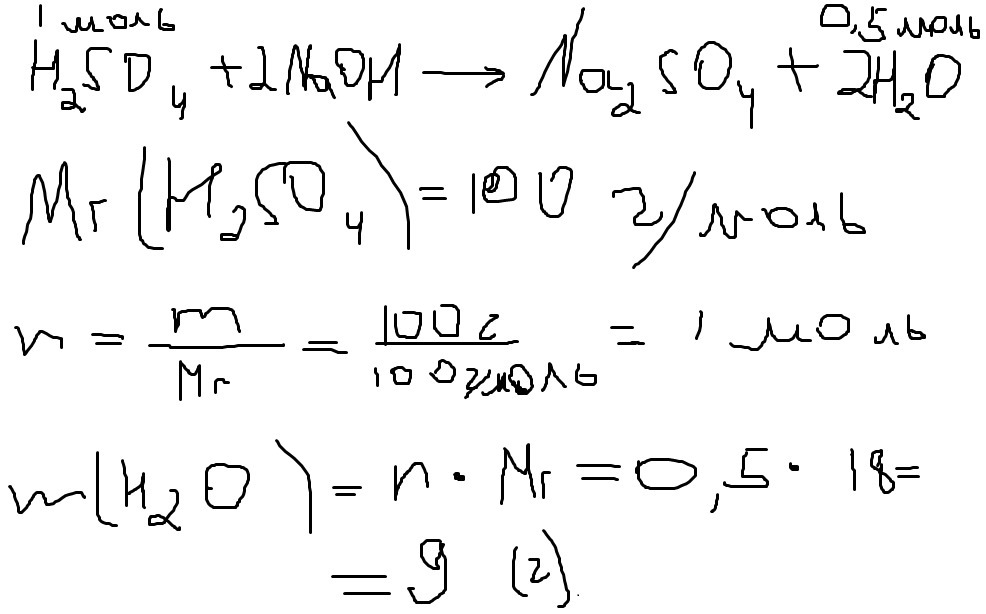 1 моль 0,5 моль
H₂SO₄ + 2NaOH → Na₂SO₄ + 2H₂O
Mr (H₂SO₄) = 100 г/моль
n = m/Mr = 100г/100г/моль = 1 моль
m(H₂O) = n · Mr = 0,5 · 18 =
= 9 (г).